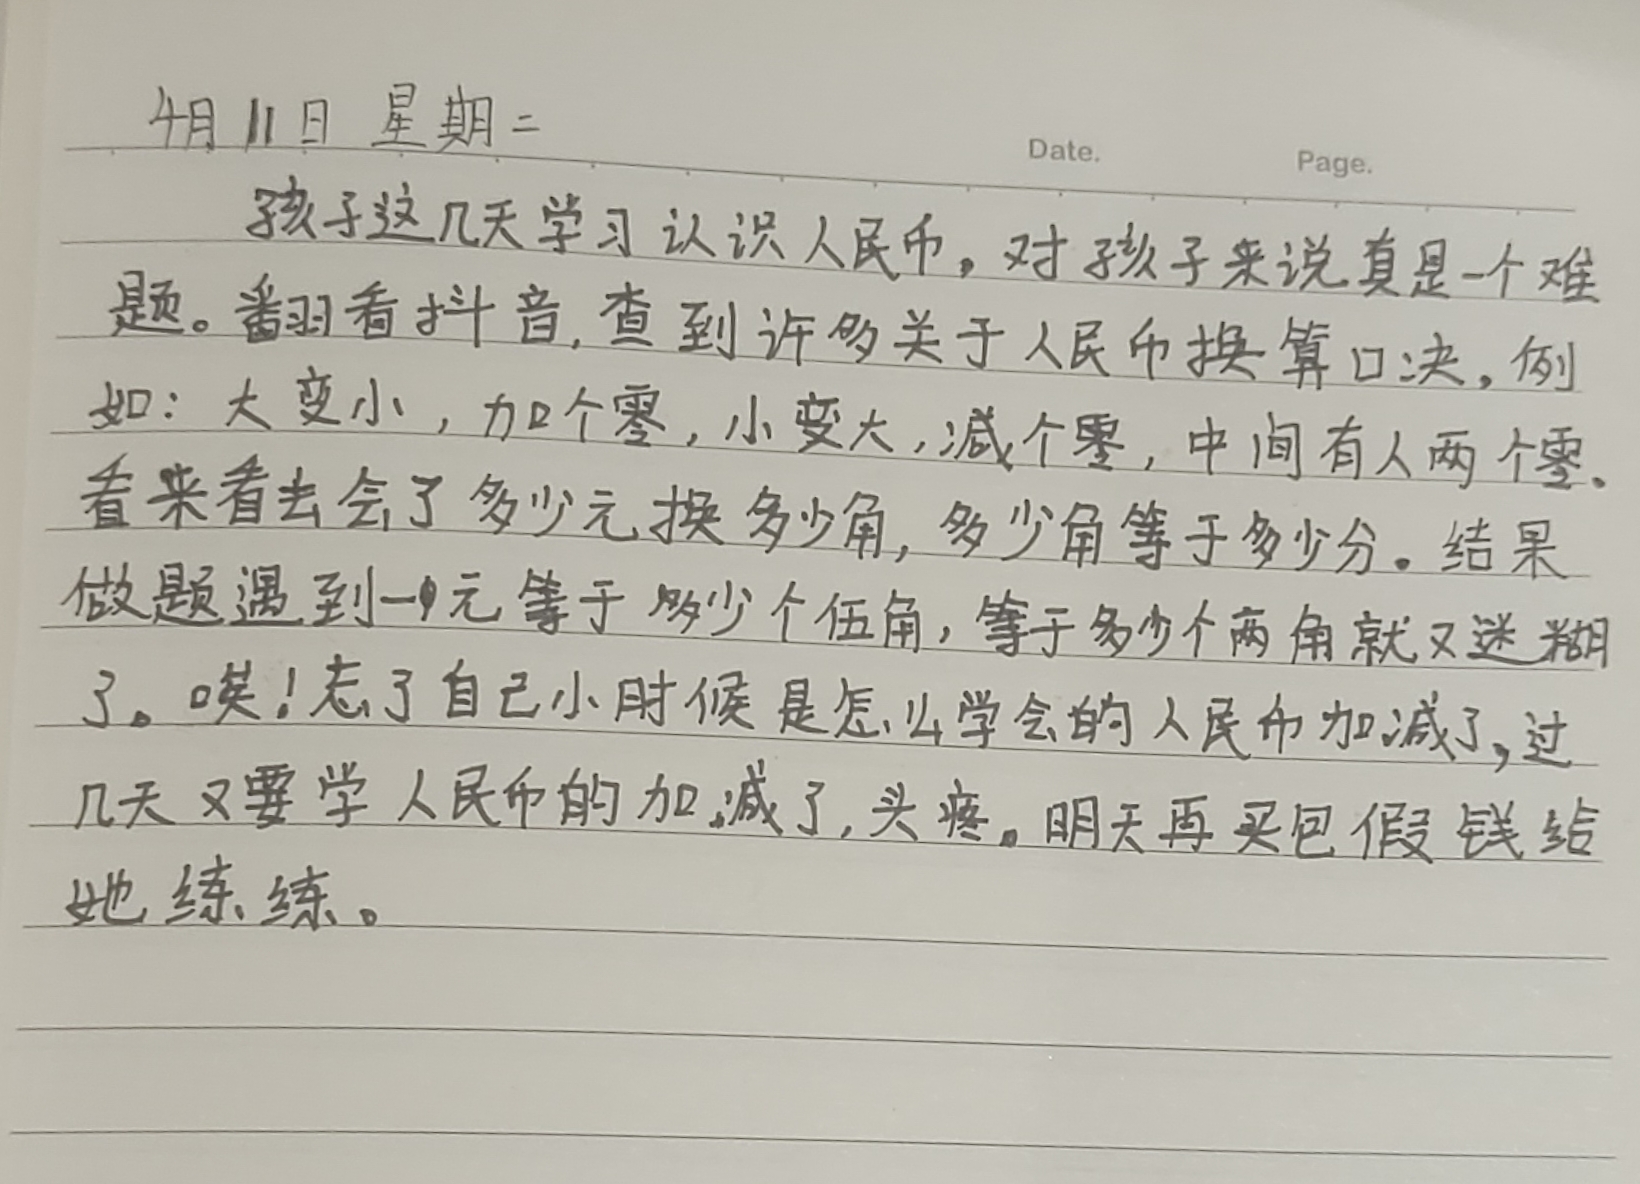 4月11日 星期二
Date. Page.
孩子这几天学习认识人民币。对孩子来说真是一个难
题。翻看抖音,查到许多关于人民币换算口决。例
如:大变小,加个零,小变大,减个零,中间有人两个零。
看来看去会了多少元换多少角,多少角等于多少分。结果
做题遇到一元等于多少个伍角,等于多少个两角就又迷糊
了。唉!忘了自己小时候是怎么学会的人民币加减了,过
几天又要学人民币的加减了,头疼。明天再买包假钱给
她练练。